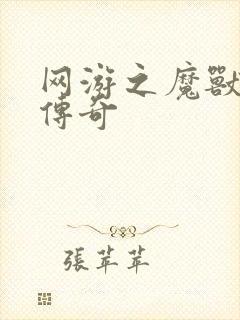 网游之魔獸
傳奇
張苹苹